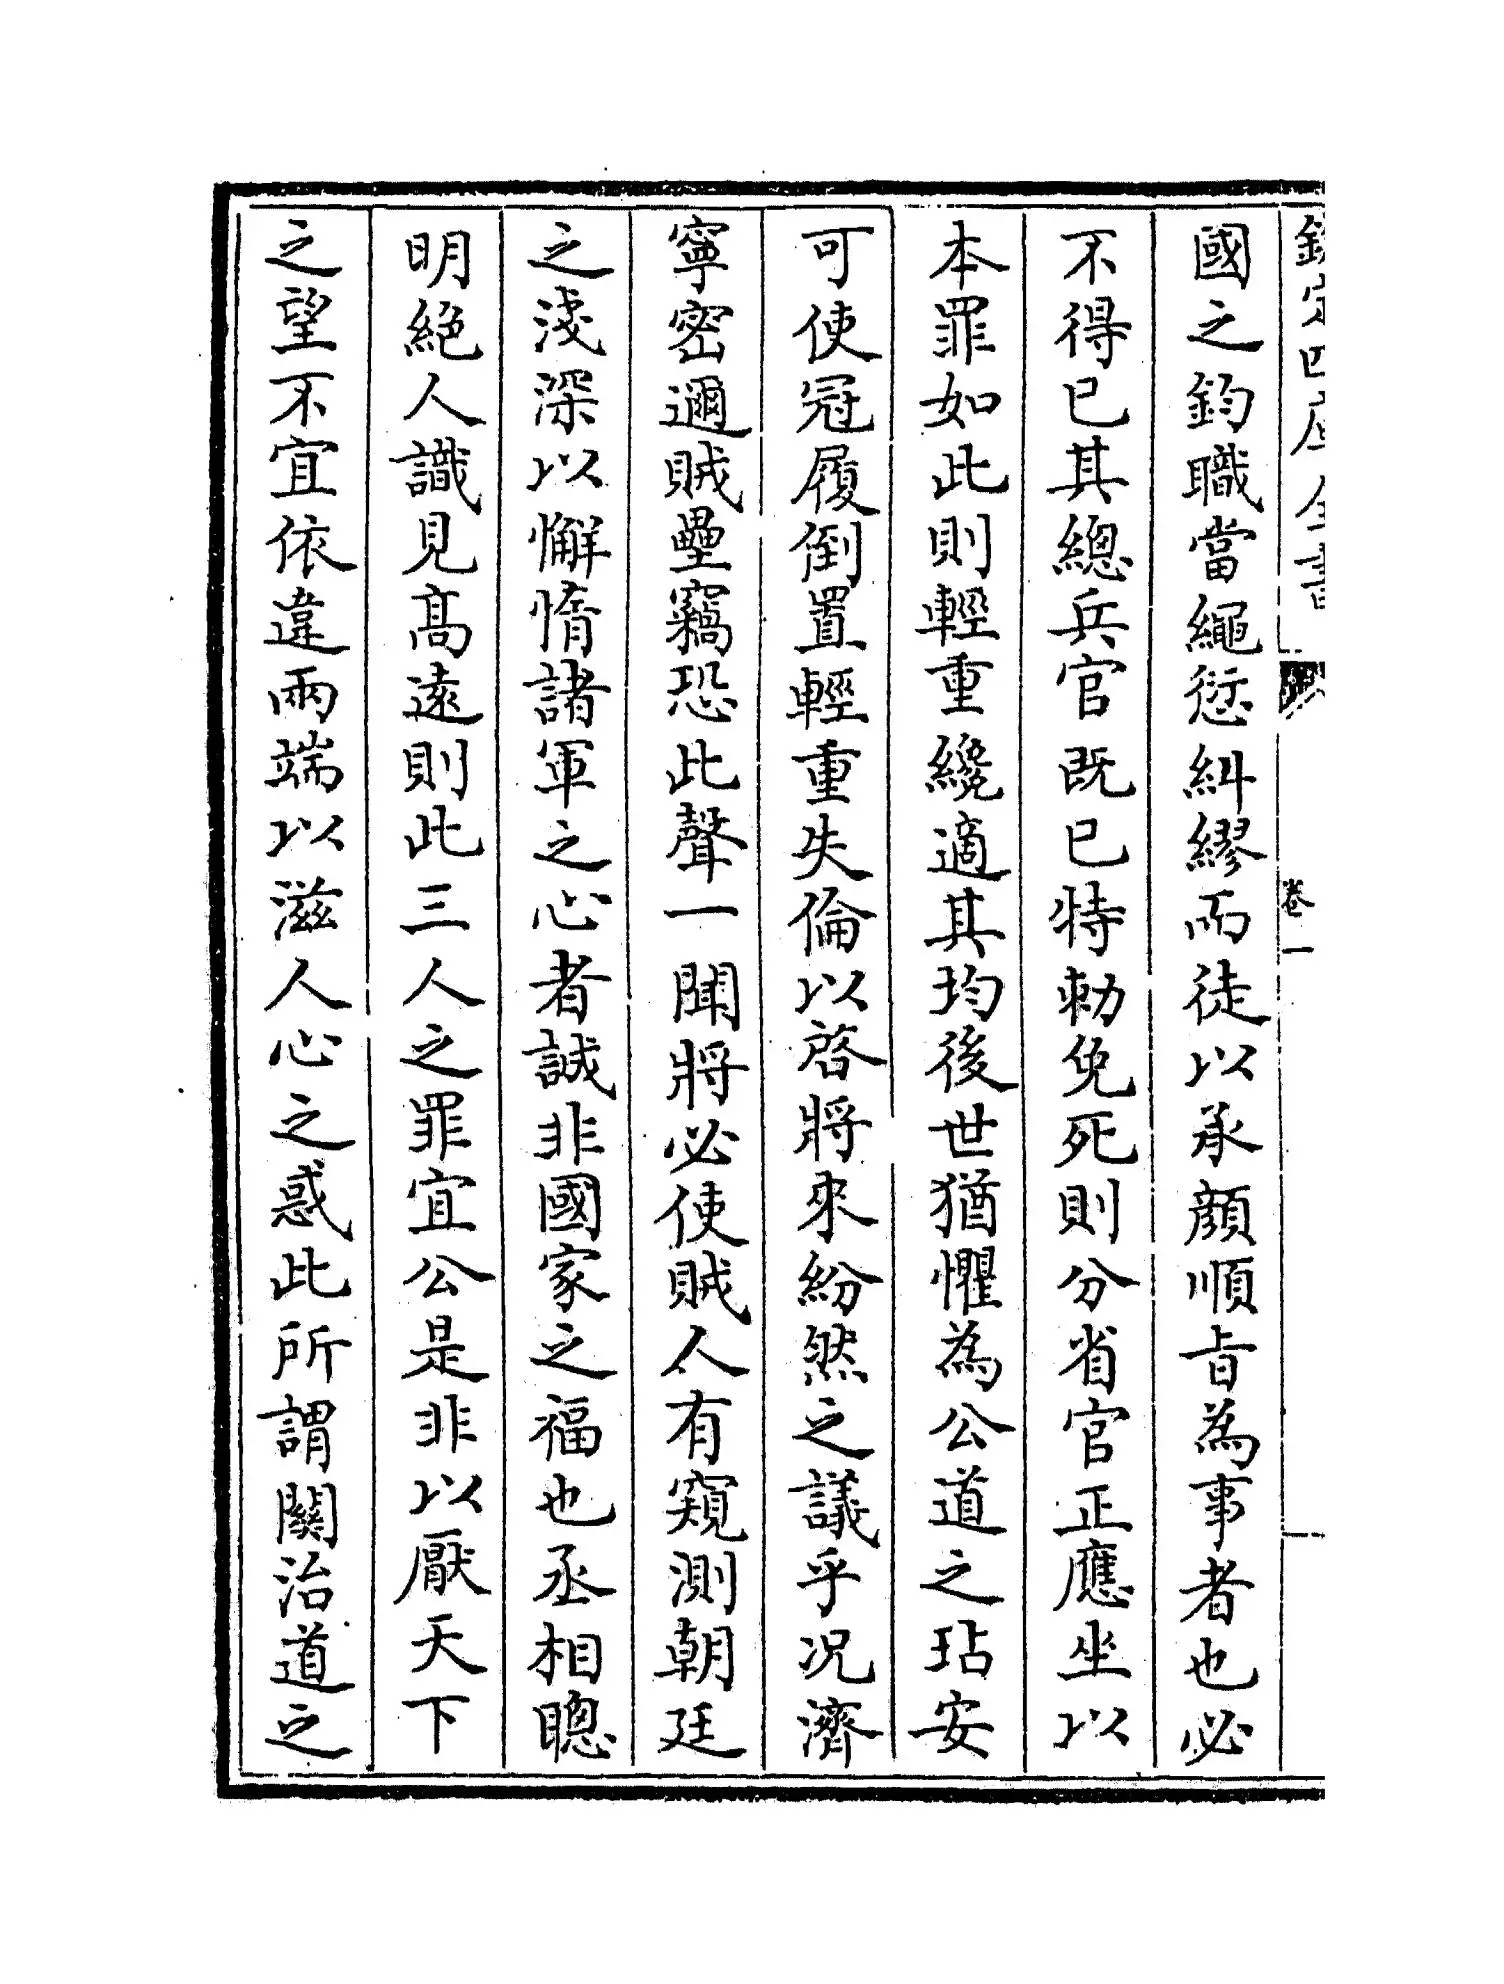 欽定四庫全書
卷一
國之鈞職當繩愆糾繆而徒以承顔順㫖為事者也必
不得已其總兵官既已特勅免死則分省官正應坐以
本罪如此則輕重纔適其均後世猶懼為公道之玷安
可使冠履倒置輕重失倫以啓將來紛然之議乎况濟
寧密邇賊壘竊恐此聲一聞將必使賊人有窺測朝廷
之淺深以懈惰諸軍之心者誠非國家之福也丞相聰
明絶人識見髙遠則此三人之罪宜公是非以厭天下
之望不宜依違兩端以滋人心之惑此所謂關治道之